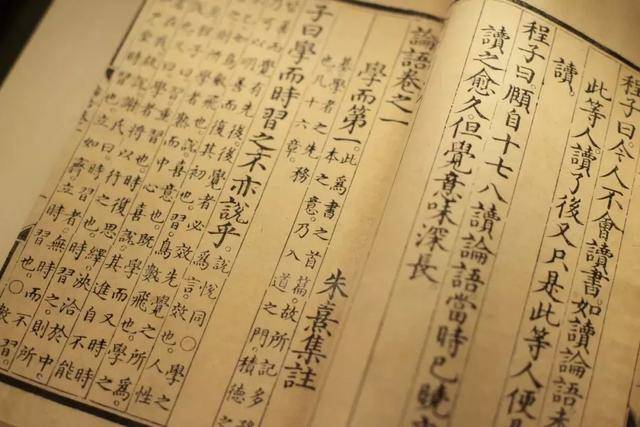 程子曰今人不會讀書如讀論語未
此等人讀了後又只是此等人便
讀
程子曰頤自十七八讀論語當時已曉
讀之愈久但覺意味深長
論語卷之一
朱熹集註
學而第一此爲書之首篇故所記多
本之意乃入道之門積德之
基學者之先務
也凡十六章
子曰學而時習之不亦說乎說悅同○學之
爲言效也人性
皆善而覺有先後後覺者必效先覺之所爲
乃可以明善而復其初也習鳥數飛也學
之不已如鳥數飛也說喜意也既學而又時
時習之則所學者熟而中心喜說其進自不能
已矣程子曰習重習也時復思繹浹洽於中
則說也又曰學者將以行之也時習之則所
學者在我故說謝氏曰時習者無時而不習